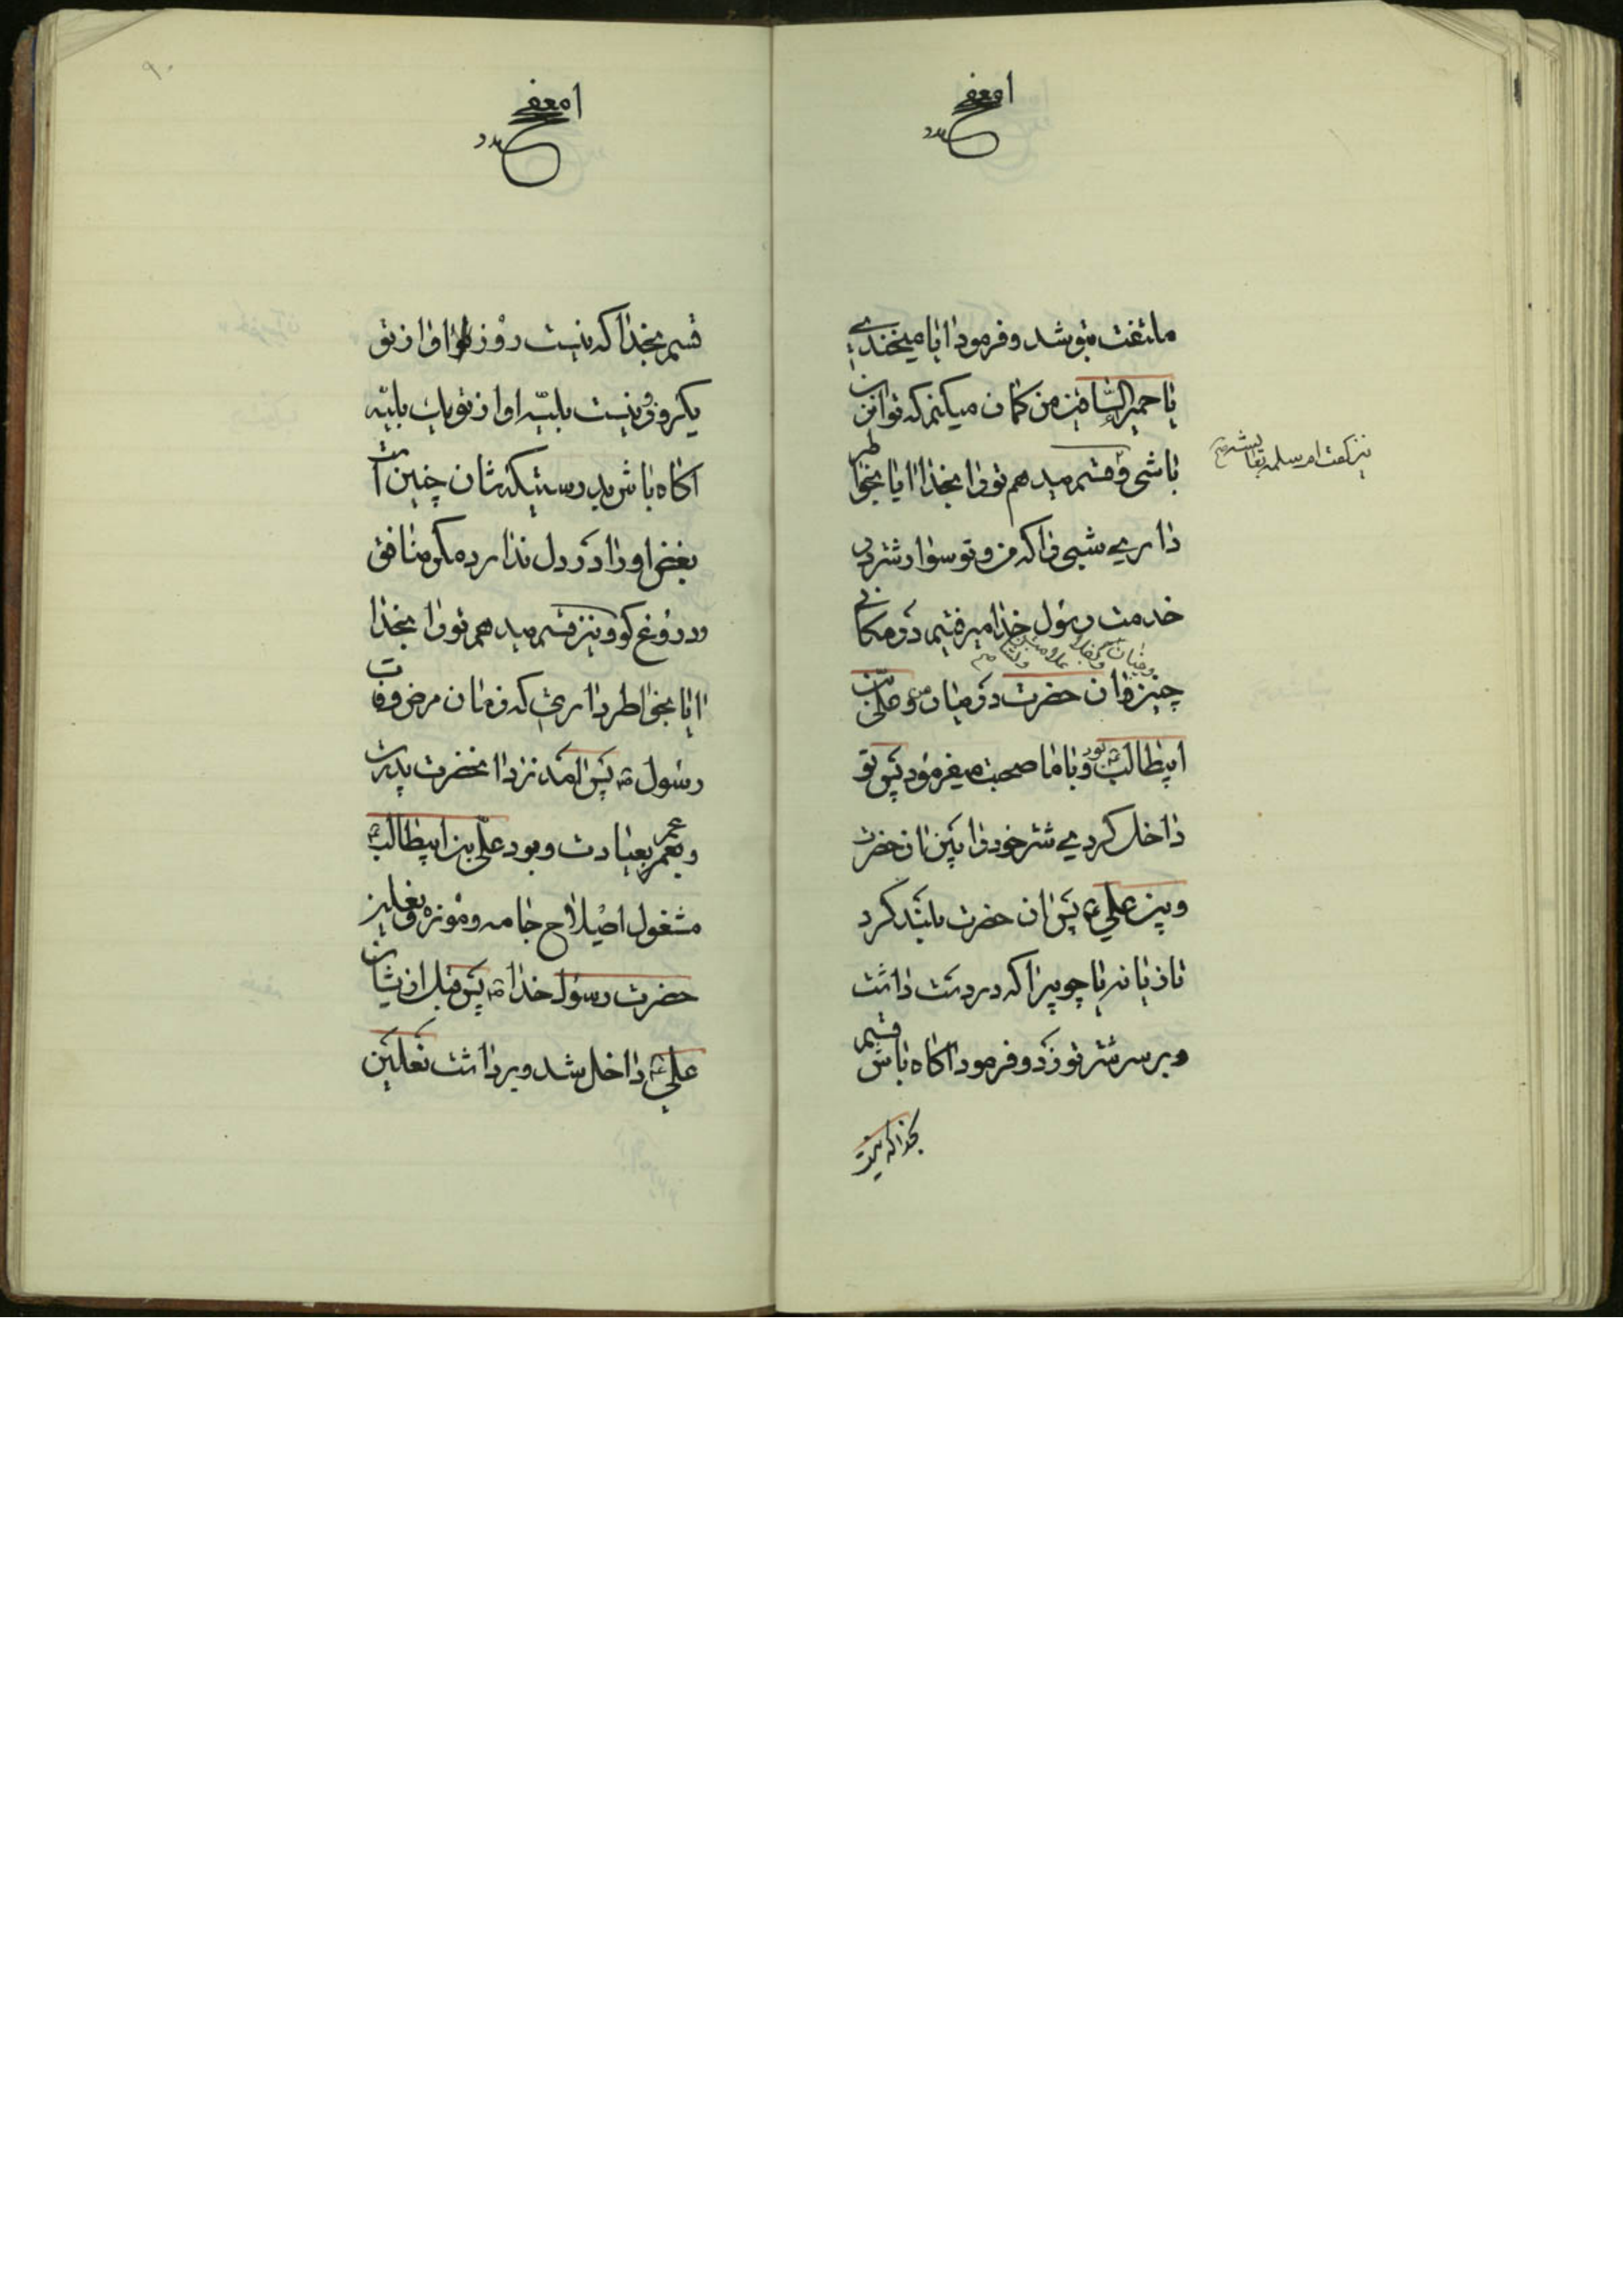 ملتفت بتو شد و فرمود ایا میخندی
یا حمیرا الساقین من کمان میکنم که تو این
باشی و قسم میدهم تو را بخدا ایا بخاطر
نیز کفت ام سلمه بعایشه
داری شبی را که من و تو سوار شتر در
خدمت رسول خدا میرفتیم در مکانی
چنین و ان حضرت در میان من و علی بن
ابیطالب بود و با ما صحبت میفرمود پس تو
داخل کردی شتر خود را بین ان حضرت
و بین علی پس ان حضرت بلند کرد
تازیانه یا چوبیرا که در دست داشت
و بر سر شتر تو زد و فرمود اکاه باش قسم
بخدا که نیست
۹۰
قسم بخدا که نیست روز او از تو
یکروز و نیست بلیه او از تو یک بلیه
اکاه باشید درستیکه شان چنین است
بغض او را در دل ندارد مکر منافق
و دروغ کو و نیز قسم میدهم تو را بخدا
ایا بخاطر داری که زمان مرض وفات
رسول ص پس امد نزد انحضرت پدرت
و عمر بعیادت و بود علی بن ابیطالب
مشغول اصلاح جامه و موزه و نعلین
حضرت رسول خدا ص پس قبل از ایشان
علی داخل شد و برداشت نعلین